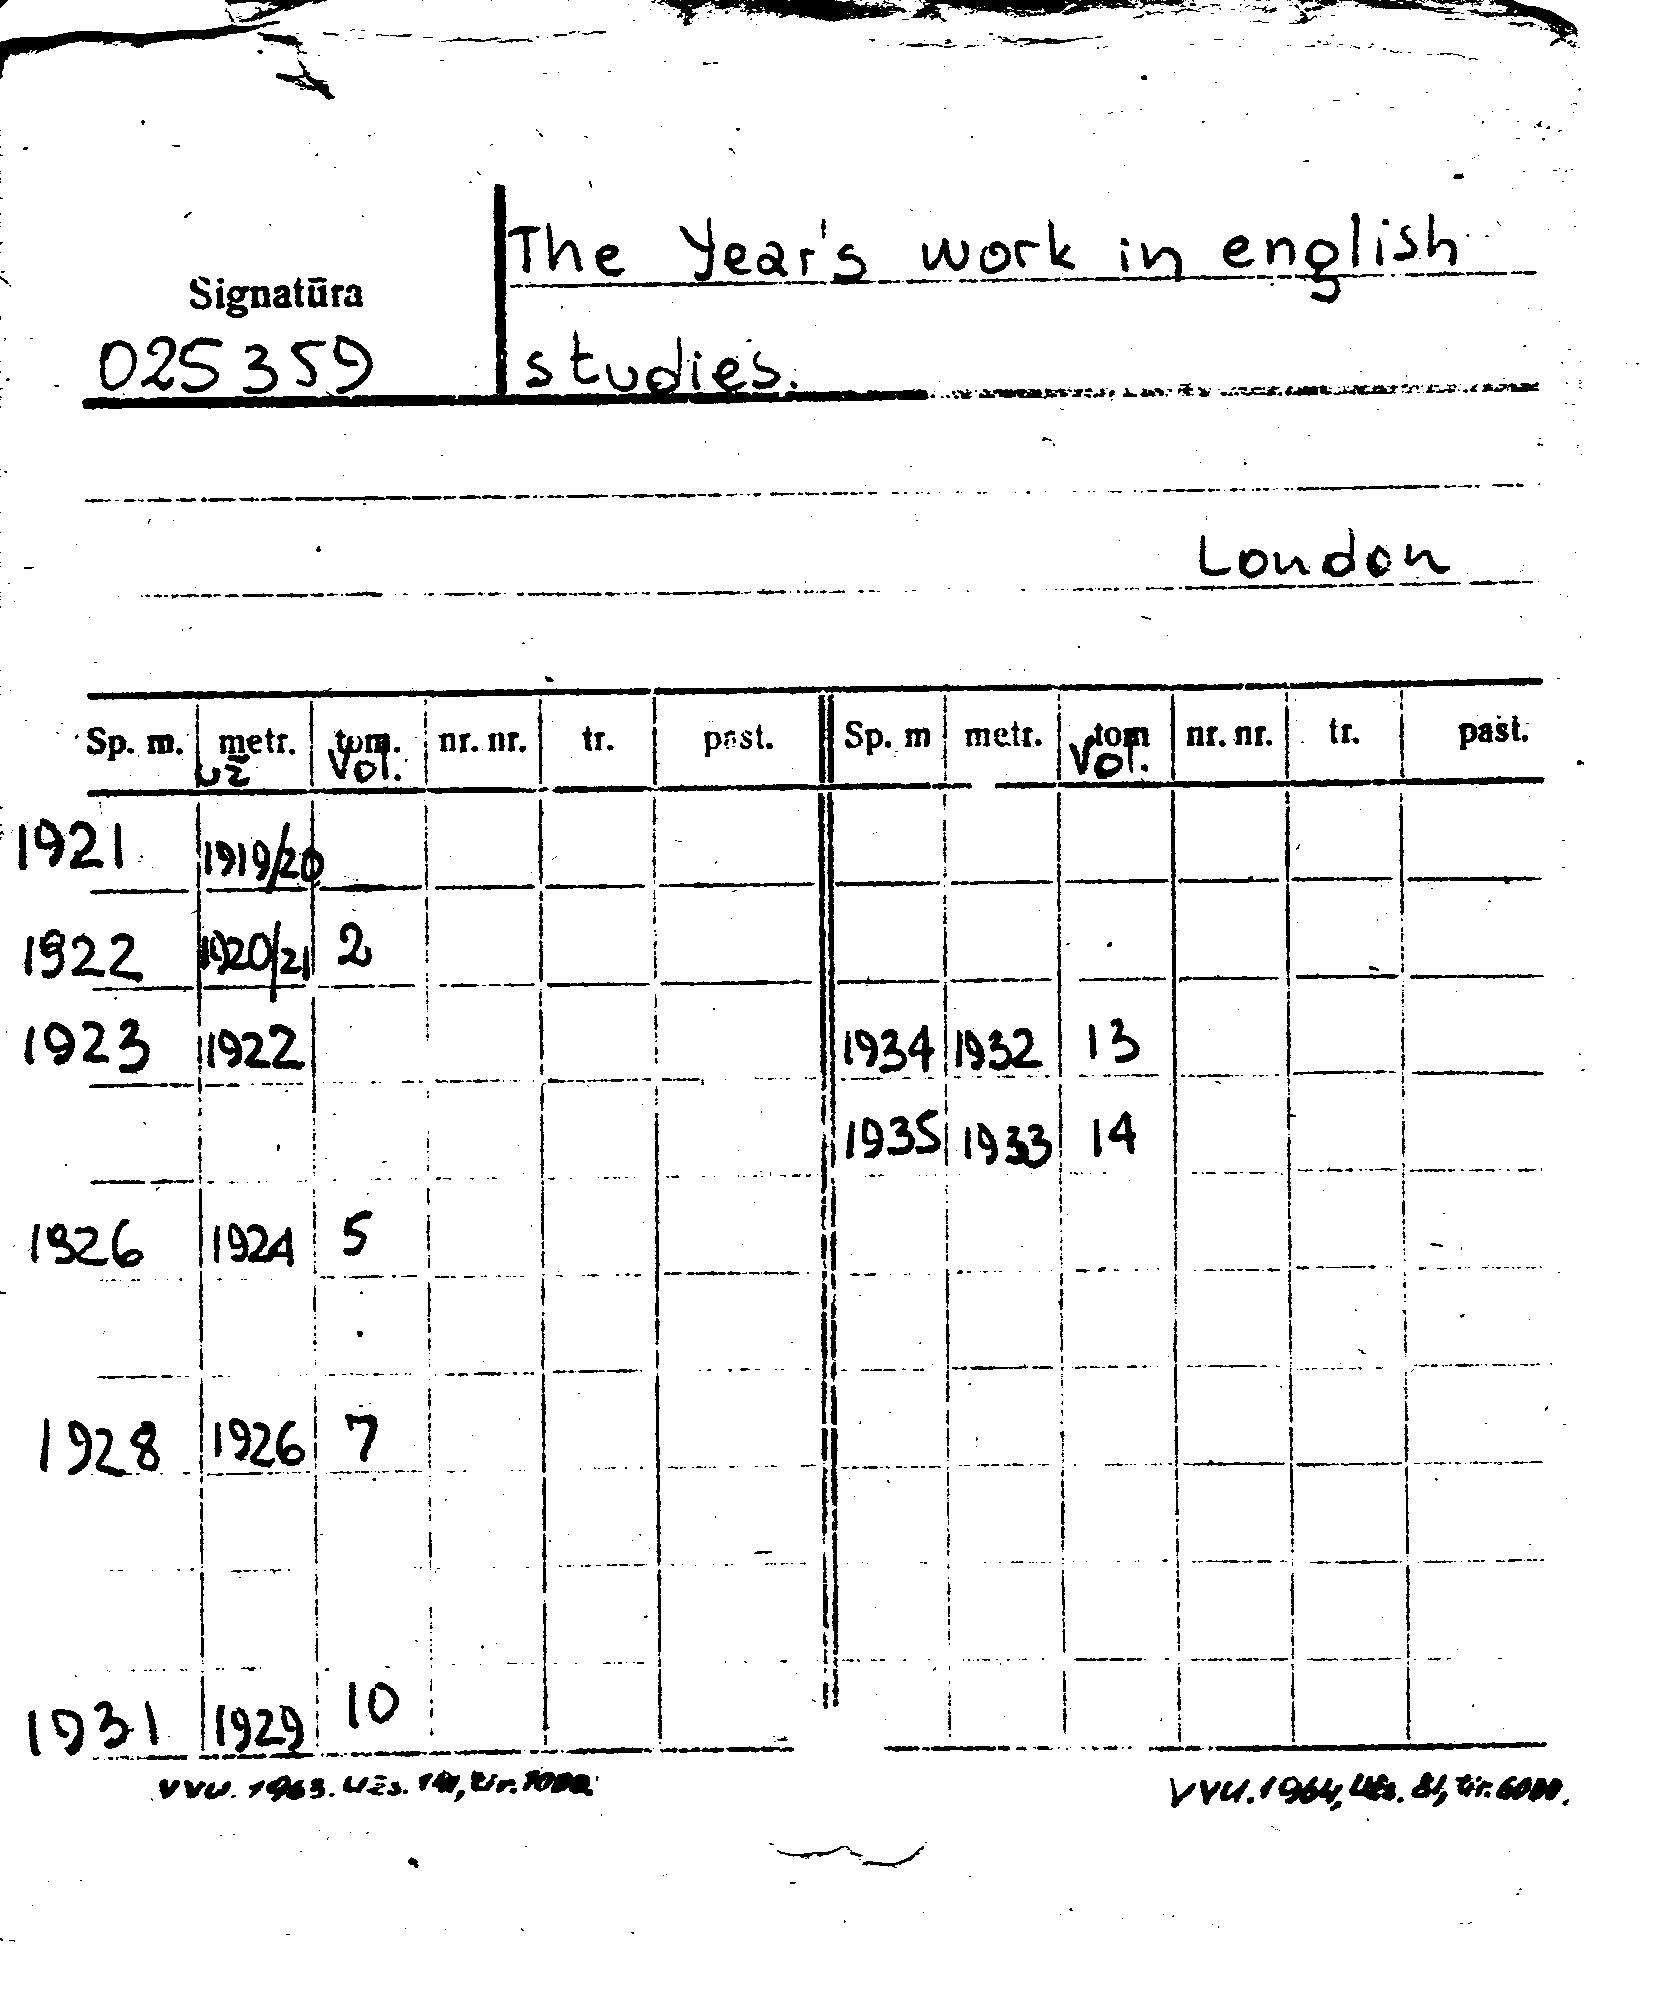 The Year's work in english
Signatūra
025359 studies.
London
Sp. m. metr. tom. nr. nr. tr. past. Sp. m metr. tom nr. nr. tr. past.
už Vol. Vol.
1921 1919/20
1922 1920/21 2
1923 1922 1934 1932 13
1935 1933 14
1926 1924 5
1928 1926 7
1931 1929 10
VVU. 1963. Užs. tir. VVU. 1964, Užs. 81, tir. 6000.